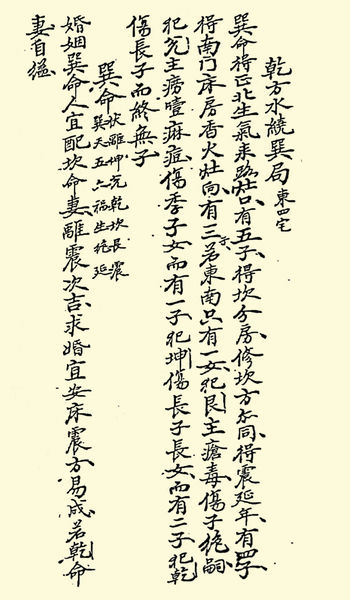 乾方水繞巽局 東四宅
巽命得正北生氣来路灶口有五子得坎分房修坎方亦同得震延年有四子
得南门床房香火灶向有三子東南只有一女犯艮主瘡毒傷子絶嗣
犯兊主癆噎麻痘傷季子女而有一子犯坤傷長子長女而有二子犯乾
傷長子而終無子
巽命 伏離坤兊乾坎艮震
巽天五六福生絶延
婚姻巽命人宜配坎命妻離震次吉求婚宜安床震方易成若乾命
妻自縊